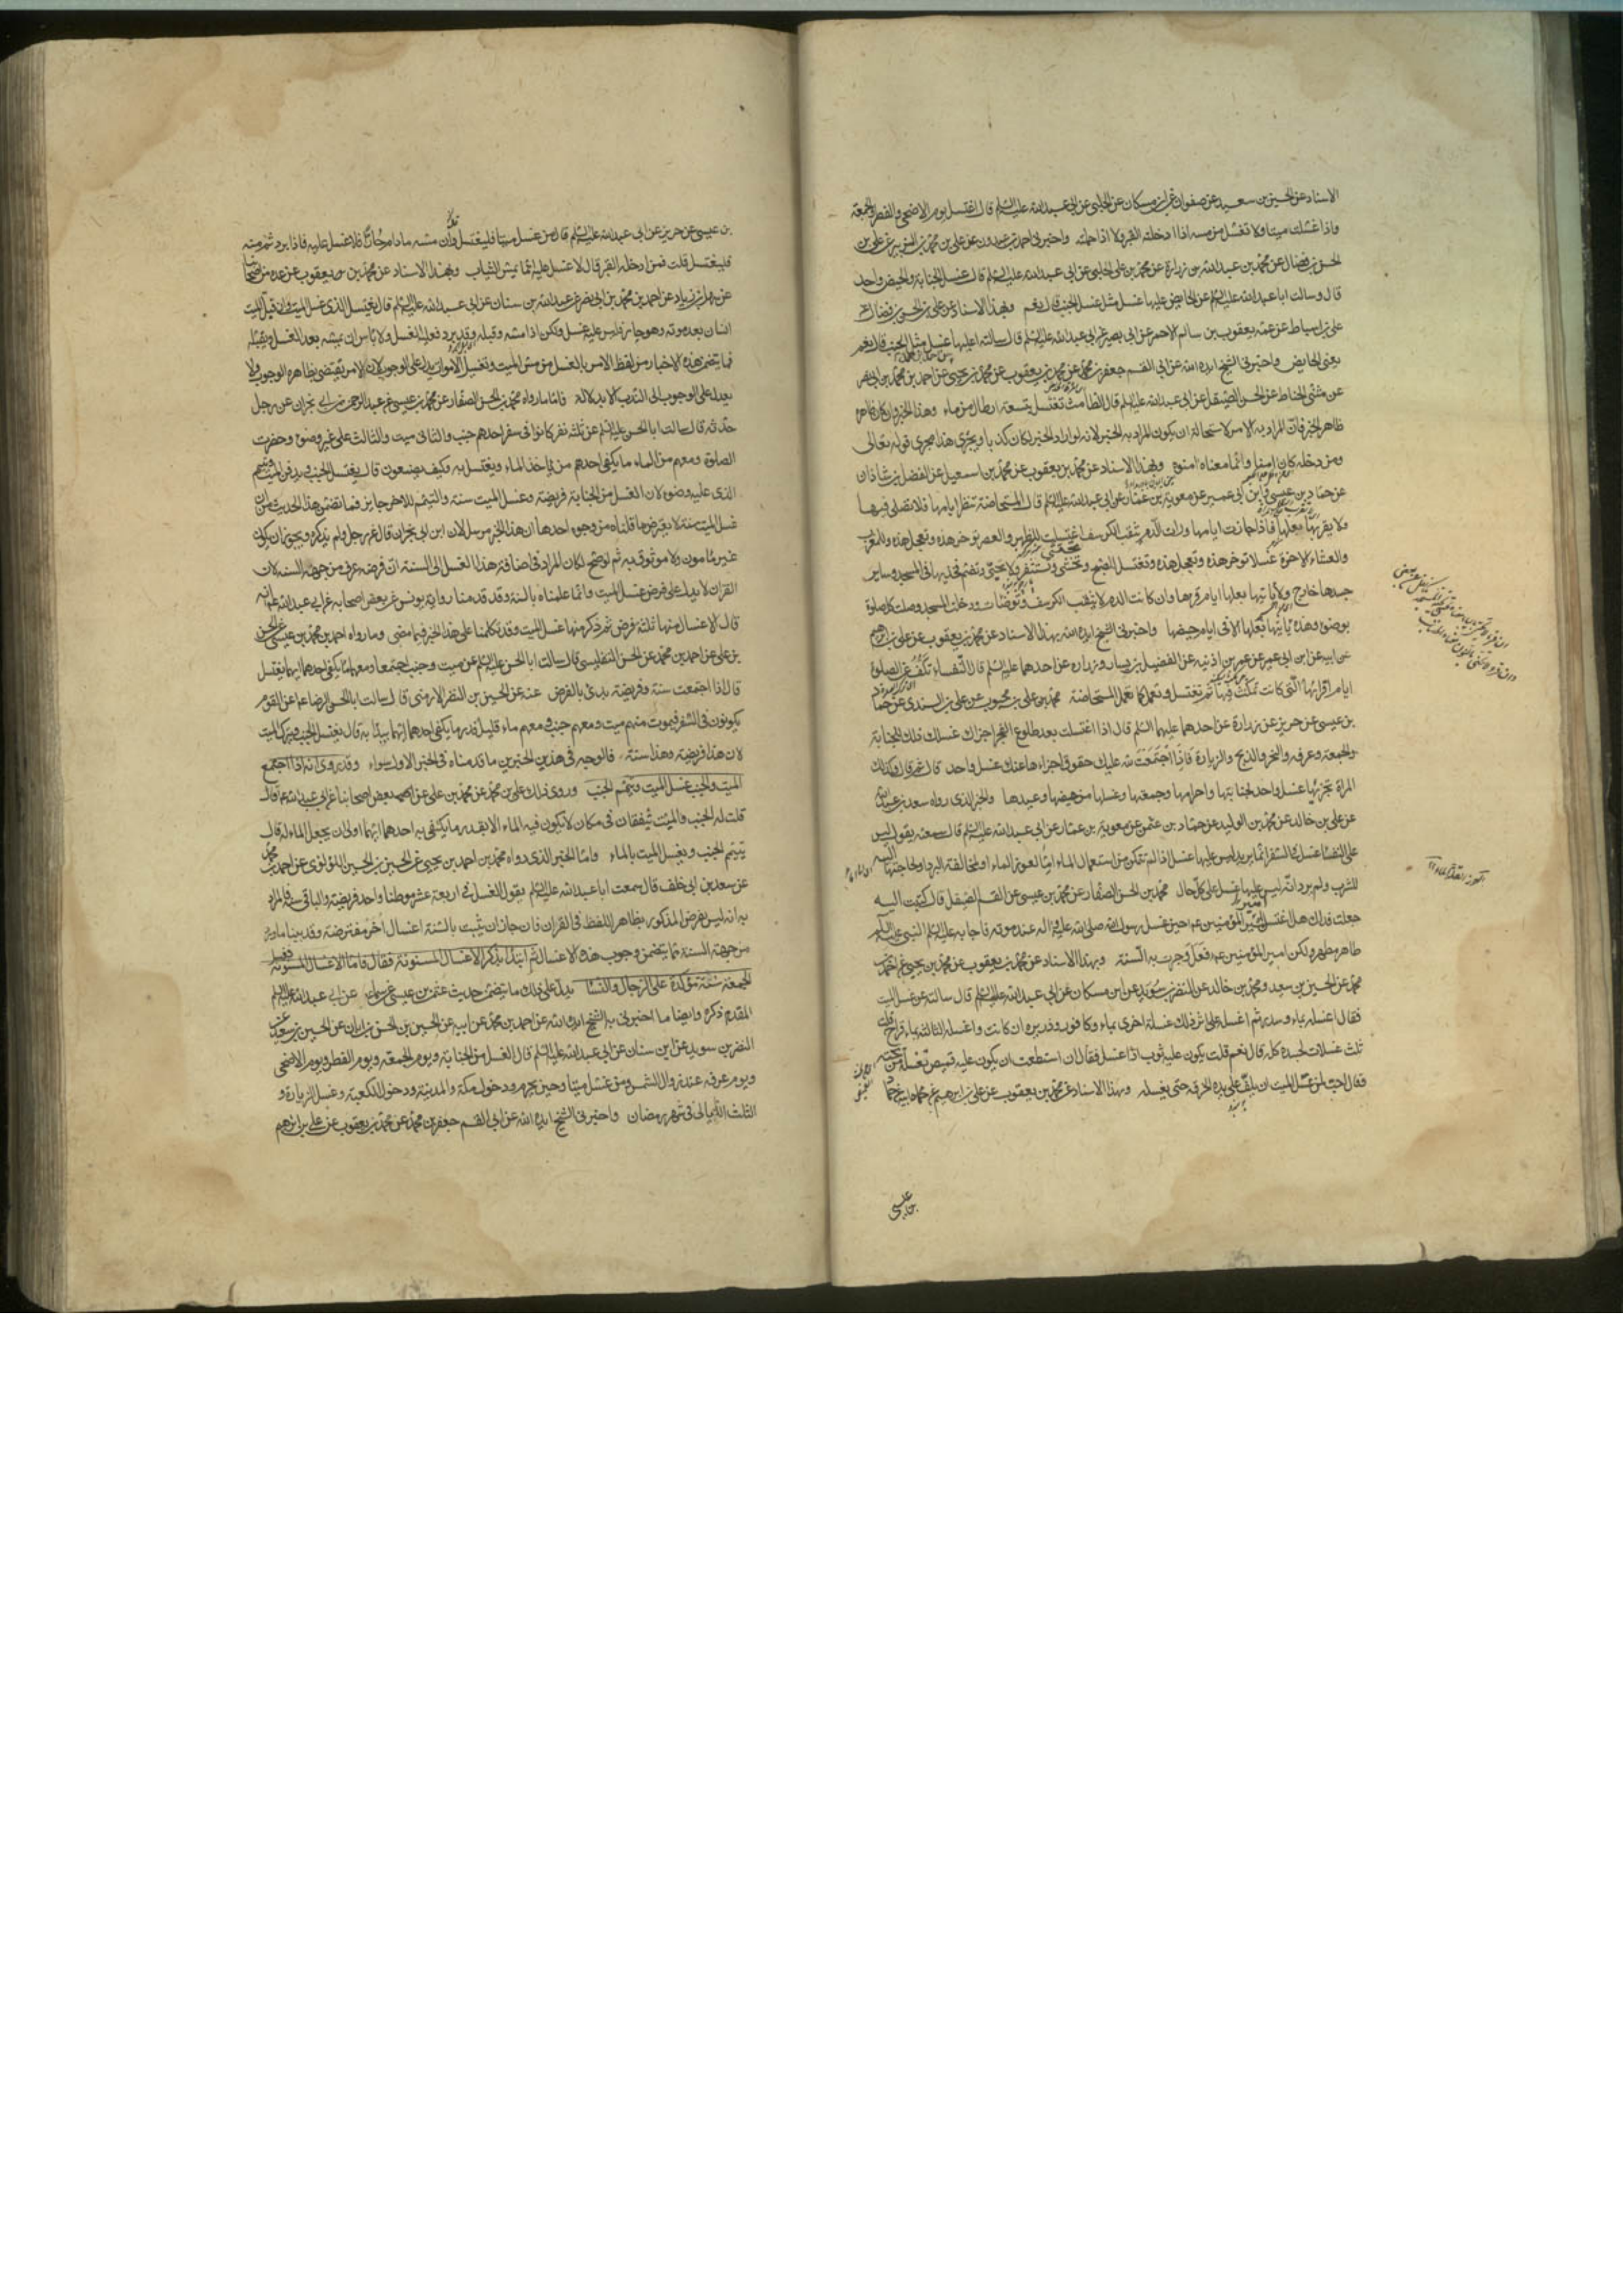 الاسناد عن الحسين بن سعيد عن صفوان عن ابن مسكان عن الحلبى عن ابى عبد الله عليه السلم قال اغتسل يوم الاضحى والفطر والجمعة
واذا غسلت ميتا ولا تغتسل من مسه اذا ادخلته القبر ولا اذا حملته واخبرنى احمد بن عبدون عن على بن محمد بن الزبير عن على بن
الحسن بن فضال عن محمد بن عبد الله بن زرارة عن محمد بن على الحلبى عن ابى عبد الله عليه السلم قال غسل الجنابة والحيض واحد
قال وسالت ابا عبد الله عليه السلم عن الحايض عليها غسل مثل غسل الجنب قال نعم وبهذا الاسناد عن على بن الحسن بن فضال عن
على بن اسباط عن عمه يعقوب بن سالم الاحمر عن ابى بصير عن ابى عبد الله عليه السلم قال سالته اعليها غسل مثل الجنب قال نعم
يعنى الحايض واخبرنى الشيخ ايده الله عن ابى القسم جعفر بن محمد عن محمد بن يعقوب عن محمد بن يحيى عن احمد بن محمد بن ابى نصر
عن مثنى الحناط عن الحسن الصيقل عن ابى عبد الله عليه السلم قال الطامث تغتسل بتسعة ارطال من ماء وهذا الخبر وان كان ظاهره
ظاهر الخبر فان المراد به الامر لاستحالة ان يكون المراد به الخبر لانه لو اراد الخبر لكان كذبا ويجرى هذا مجرى قوله تعالى
ومن دخله كان امنا وانما معناه امنوه وبهذا الاسناد عن محمد بن يعقوب عن محمد بن اسمعيل عن الفضل بن شاذان
عن حماد بن عيسى وابن ابى عمير عن معوية بن عمار عن ابى عبد الله عليه السلم قال المستحاضة تنظر ايامها فلا تصلى فيها
ولا يقربها بعلها فاذا جازت ايامها ورات الدم يثقب الكرسف اغتسلت للظهر والعصر توخر هذه وتعجل هذه وللمغرب
والعشاء الاخرة غسلا توخر هذه وتعجل هذه وتغتسل للصبح وتحتشى وتستثفر ولا تحيى وتضم فخذيها فى المسجد وساير
جسدها خارج ولا ياتيها بعلها ايام قرءها وان كانت الدم لا يثقب الكرسف توضات ودخلت المسجد وصلت كل صلوة
بوضوء وهذه ياتيها بعلها الا فى ايام حيضها واخبرنى الشيخ ايده الله بهذا الاسناد عن محمد بن يعقوب عن على بن ابرهيم
عن ابيه عن ابن ابى عمير عن عمر بن اذينه عن الفضيل بن يسار وزراره عن احدهما عليه السلم قال النفساء تكف عن الصلوة
ايام اقرائها التى كانت تمكث فيها ثم تغتسل وتعمل كما تعمل المستحاضة محمد بن على بن محبوب عن على بن السندى عن حماد
بن عيسى عن حريز عن زرارة عن احدهما عليهما السلم قال اذا اغتسلت بعد طلوع الفجر اجزاك غسلك ذلك للجنابة
والجمعة وعرفه والنحر والذبح والزيارة فاذا اجتمعت لله عليك حقوق اجزاءها عنك غسل واحد قال ثم قال وكذلك
المراة يجزيها غسل واحد لجنابتها واحرامها وجمعتها وغسلها من حيضها وعيدها والخبر الذى رواه سعد بن عبد الله
عن على بن خالد عن محمد بن الوليد عن حماد بن عثمن عن معوية بن عمار عن ابى عبد الله عليه السلم قال سمعته يقول ليس
على النفساء غسل فى السفر انما يريد ليس عليها غسل اذا لم تتمكن من استعمال الماء اما لعوز الماء او لمخافة البرد او لحاجتها اليه
للشرب ولم يرد انه ليس عليها غسل على كل حال محمد بن الحسن الصفار عن محمد بن عيسى عن القسم الصيقل قال كتبت اليه
جعلت فداك هل اغتسل امير المؤمنين عم حين غسل رسول الله صلى الله عليه واله عند موته فاجابه عليه السلم النبى عليه السلم
طاهر مطهر ولكن امير المؤمنين عم فعل وجرت به السنة وبهذا الاسناد عن محمد بن يعقوب عن محمد بن يحيى عن احمد بن
محمد عن الحسين بن سعيد ومحمد بن خالد عن النضر بن سويد عن ابن مسكان عن ابى عبد الله عليه السلم قال سالته عن غسل الميت
فقال اغسله بماء وسدر ثم اغسله على اثر ذلك غسلة اخرى بماء وكافور وذريره ان كانت واغسله الثالثة بماء قراح قلت
ثلث غسلات لجسده كله قال نعم قلت يكون عليه ثوب اذا غسل فقال ان استطعت ان يكون عليه قميص تغسله من تحته
فقال احب لمن غسل الميت ان يلف على يده الخرقه حتى يغسله وبهذا الاسناد عن محمد بن يعقوب عن على بن ابرهيم عن
بن عيسى عن حريز عن ابى عبد الله عليه السلم قال من غسل ميتا فليغتسل وان مسه ما دام حارا فلا غسل عليه فاذا برد ثم مسه
فليغتسل قلت فمن ادخله القبر قال لا غسل عليه انما يمس الثياب وبهذا الاسناد عن محمد بن يعقوب عن عده من اصحابنا
عن سهل بن زياد عن احمد بن محمد بن ابى نصر عن عبد الله بن سنان عن ابى عبد الله عليه السلم قال يغتسل الذى غسل الميت وان قبل الميت
انسان بعد موته وهو حار فليس عليه غسل ولكن اذا مسه وقبله وقد برد فعليه الغسل ولا باس ان يمسه بعد الغسل ويقبله
فما يتضمن هذه الاخبار من لفظ الامر بالغسل من مس الميت وتغسيل الاموات يدل على الوجوب لان الامر يقتضى بظاهره الوجوب ولا
يعدل عن الوجوب الى الندب الا بدلالة فاما ما رواه محمد بن الحسن الصفار عن محمد بن عيسى عن عبد الرحمن بن ابى نجران عن رجل
حدثه قال سالت ابا الحسن عليه السلم عن ثلثة نفر كانوا فى سفر احدهم جنب والثانى ميت والثالث على غير وضوء وحضرت
الصلوة ومعهم من الماء ما يكفى احدهم من ياخذ الماء ويغتسل به وكيف يصنعون قال يغتسل الجنب ويدفن الميت ويتيمم
الذى عليه وضوء لان الغسل من الجنابة فريضة وغسل الميت سنة والتيمم للاخر جايز فما تضمن هذا الحديث من ان
غسل الميت سنة لا يعترض ما قلناه من وجوه احدها ان هذا الخبر مرسل لان ابن ابى نجران قال عن رجل ولم يذكره ويجوز ان يكون
غير مامون ولا موثوق به ثم لو صح لكان المراد فى اضافة هذا الغسل الى السنة ان فرضه عرف من جهة السنة لان
القران لا يدل على فرض غسل الميت وانما علمناه بالسنة وقد قدمنا رواية يونس عن بعض اصحابه عن ابى عبد الله عم انه
قال الاغسال منها ثلثة فرض ثم ذكر منها غسل الميت وقد تكلمنا على هذا الخبر فيما مضى وما رواه احمد بن محمد بن عيسى عن الحسن
بن على عن احمد بن محمد عن الحسن التفليسى قال سالت ابا الحسن عليه السلم عن ميت وجنب اجتمعا ومعهما ما يكفى احدهما ايهما يغتسل
قال اذا اجتمعت سنة وفريضة بدئ بالفرض عنه عن الحسين بن النضر الارمنى قال سالت ابا الحسن الرضا عم عن القوم
يكونون فى السفر فيموت منهم ميت ومعهم جنب ومعهم ماء قليل قدر ما يكفى احدهما ايهما يبدا به قال يغتسل الجنب ويترك الميت
لان هذا فريضة وهذا سنة فالوجه فى هذين الخبرين ما قدمناه فى الخبر الاول سواء وقد روى انه اذا اجتمع
الميت والجنب غسل الميت وتيمم الجنب وروى ذلك على بن محمد عن محمد بن على عن بعض اصحابنا عن ابى عبد الله عم قال
قلت له الجنب والميت يتفقان فى مكان لا يكون فيه الماء الا بقدر ما يكتفى به احدهما ايهما اولى ان يجعل الماء له قال
يتيمم الجنب ويغسل الميت بالماء واما الخبر الذى رواه محمد بن احمد بن يحيى عن الحسين بن الحسن اللؤلؤى عن احمد بن محمد
عن سعد بن ابى خلف قال سمعت ابا عبد الله عليه السلم يقول الغسل فى اربعة عشر موطنا واحد فريضة والباقى سنة فالمراد
به انه ليس بفرض المذكور بظاهر اللفظ فى القران فان جاز ان يثبت بالسنة اغسال اخر مفترضة وقد بينا ما ورد
من جهة السنة مما يتضمن وجوب هذه الاغسال ثم ابتدا بذكر الاغسال المسنونة فقال فاما الاغسال المسنونة فغسل
الجمعة سنة مؤكدة على الرجال والنسا يدل على ذلك ما يتضمن حديث عثمن بن عيسى عن سماعة عن ابى عبد الله عليه السلم
المقدم ذكره وايضا ما اخبرنى به الشيخ ايده الله عن احمد بن محمد عن ابيه عن الحسين بن الحسن بن ابان عن الحسين بن سعيد عن
النضر بن سويد عن ابن سنان عن ابى عبد الله عليه السلم قال الغسل من الجنابة ويوم الجمعة ويوم الفطر ويوم الاضحى
ويوم عرفه عند زوال الشمس ومن غسل ميتا وحين يحرم ودخول مكة والمدينة ودخول الكعبة وغسل الزيارة و
الثلث الليالى فى شهر رمضان واخبرنى الشيخ ايده الله عن ابى القسم جعفر بن محمد عن محمد بن يعقوب عن على بن ابرهيم